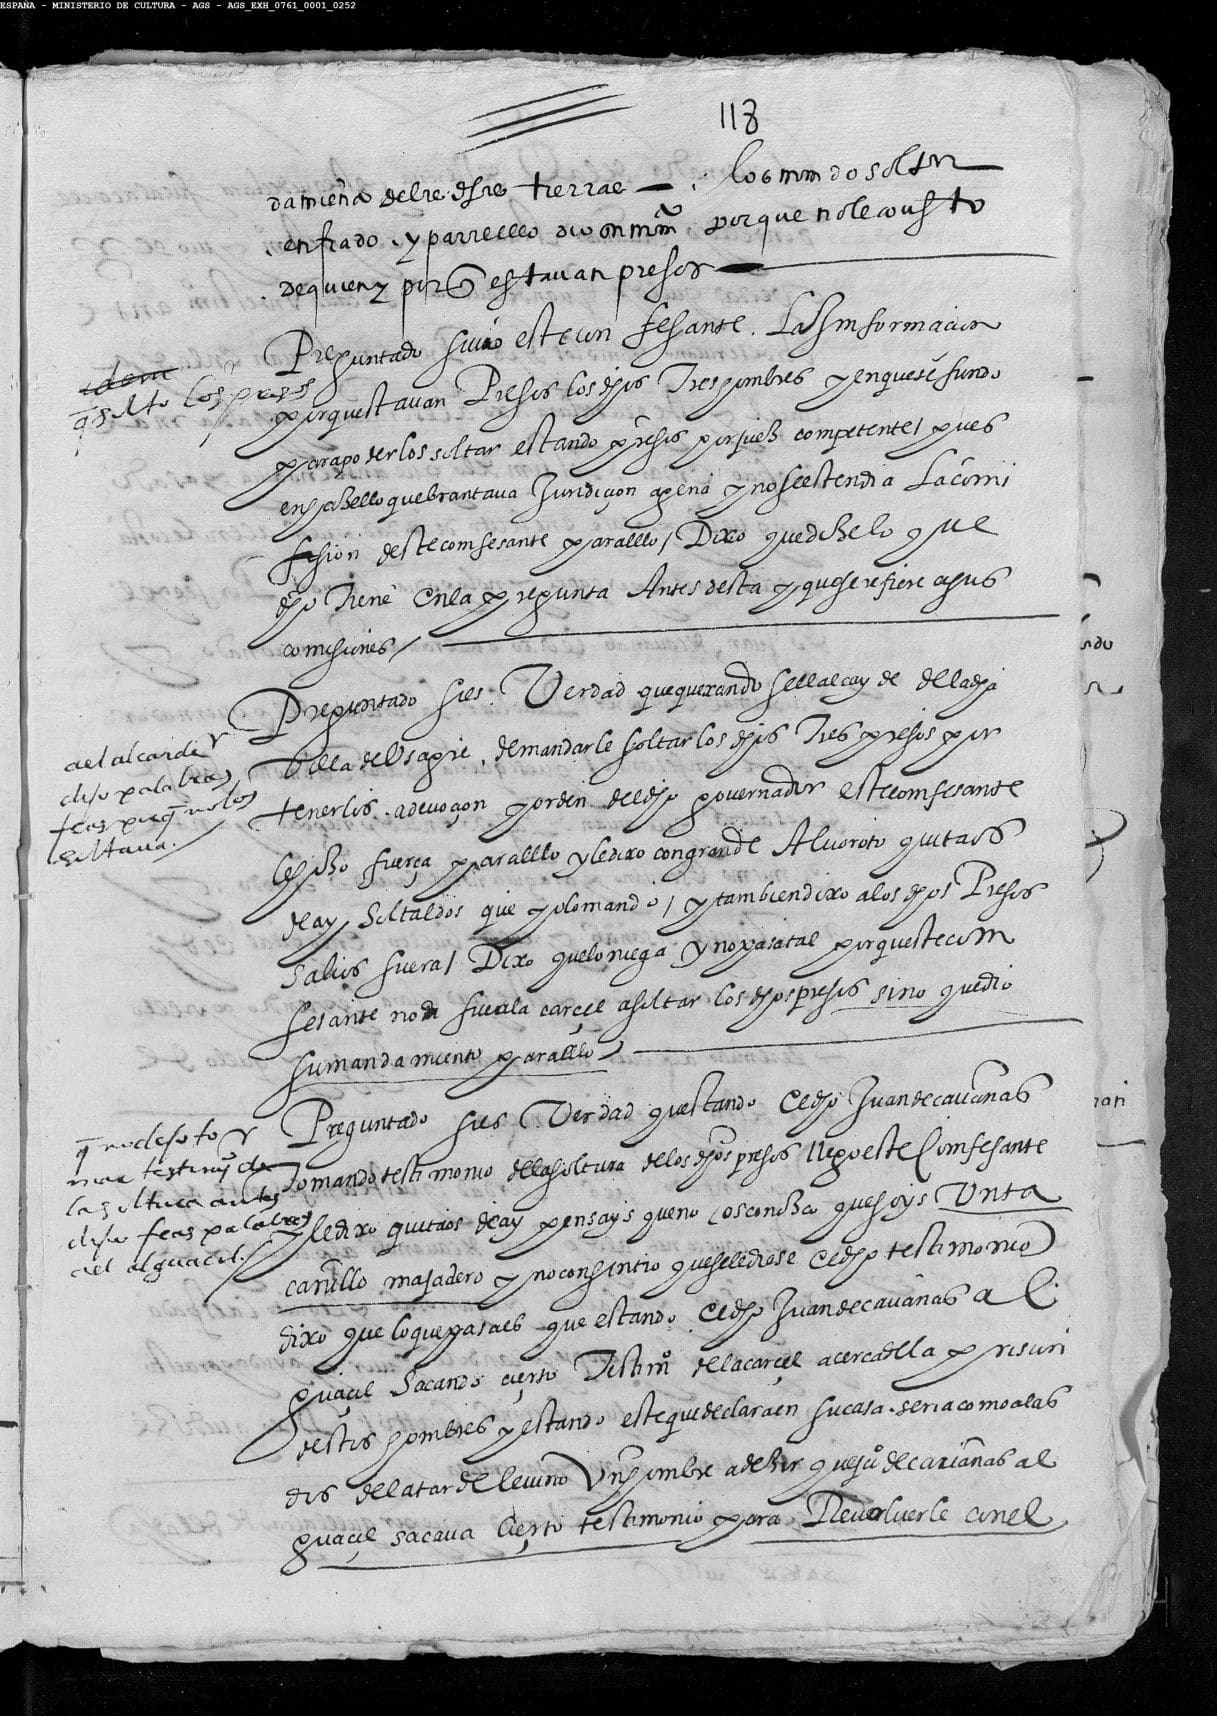 ESPAÑA - MINISTERIO DE CULTURA - AGS - AGS_EXH_0761_0001_0252
118
tierrae los mando soltar
enfiado y para ello dio su mm porque no le consto
de quien y por q estavan presos
Preguntado si vio este confesante las ynformacion
porquestavan Presos los dhos Tres hombres y en que se fundo
para poderlos soltar estando presos por juez competente pues
en hazello quebrantava Juridiçion agena y no se estendia La comi
sion deste comfesante para ello / Dixo que dize lo que
dho Tiene en la pregunta Antes desta y que se refiere a sus
comisiones /
q solto los presos
Preguntado si es Verdad que quexandose el alcayde de la dha
Villa de Usagre de mandarle soltar los dhos Tres presos por
tenerlos a devoçion y orden del dho governador este comfesante
le hizo fuerça para ello y le dixo con grande Alvoroto quitaos
de ay Soltaldos que yo lo mando / y tambien dixo a los dhos Presos
salios fuera / Dixo que lo niega y no pasa tal porqueste com
fesante no fue a la carçel a soltar los dhos presos sino que dio
su mandamiento para ello
al alcaide
dijo palabras
feas porq no los
soltava.
Preguntado si es Verdad questando el dho Juan de cavañas
Tomando testimonio de la soltura de los dhos presos llego este Comfesante
y le dixo quitaos de ay pensays que no os conozco que soys Unta
carrillo majadero y no consintio que se le diese el dho testimonio
dixo que lo que pasa es que estando el dho Juan de cavañas al
guaçil Sacando çierto Testimo de la carçel acerca de la prision
destos hombres y estando este que declara en su casa seria como a las
dos de la tarde le vino Un hombre a dezir que Juo de cavañas al
guaçil sacava Çierto testimonio para Revolverle con el
q no dejo to
mar testimo de
la soltura antes
dijo feas palabras
al alguacil.